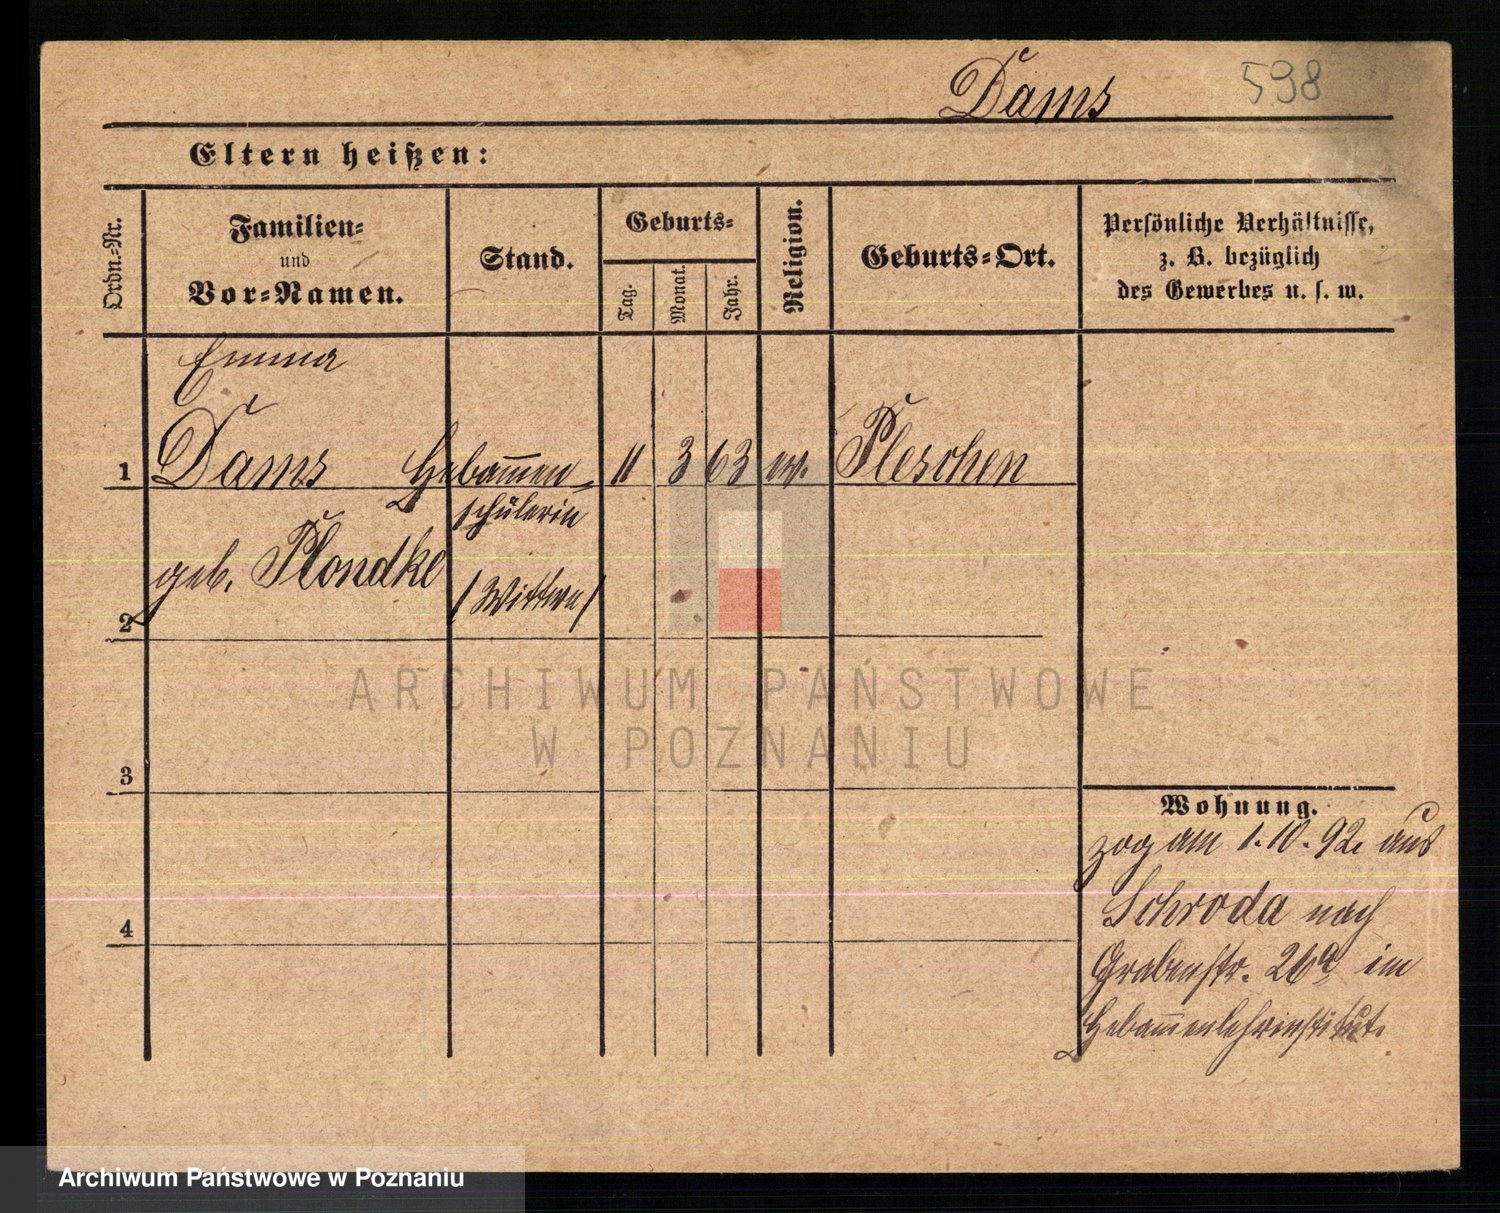 Dams 598
Eltern heißen:
Ordn.-Nr.
Familien-
und
Vor-Namen.
Stand.
Geburts-
Tag.
Monat.
Jahr.
Religion.
Geburts-Ort.
Persönliche Verhältnisse,
z. B. bezüglich
des Gewerbes u. s. w.
Emma
1 Dams Hebam̅en- 11 3 63 ev. Pleschen
schülerin
geb. Plondke
/Wittwe/
2
ARCHIWUM PAŃSTWOWE
W POZNANIU
3
Wohnung.
zog am 1.10.92. aus
Schroda nach
4
Grabenstr. 26a im
Hebam̅enlehrinstitut.
Archiwum Państwowe w Poznaniu